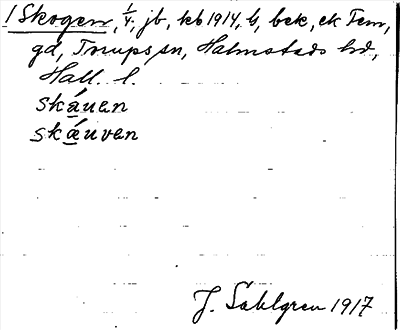 1 Skogen, 1/4, jb, kb 1914, b, bek, ek Fem,
gd, Trups sn, Halmstads hd,
Hall. l.
skáuen
skáuven
J. Sahlgren 1917